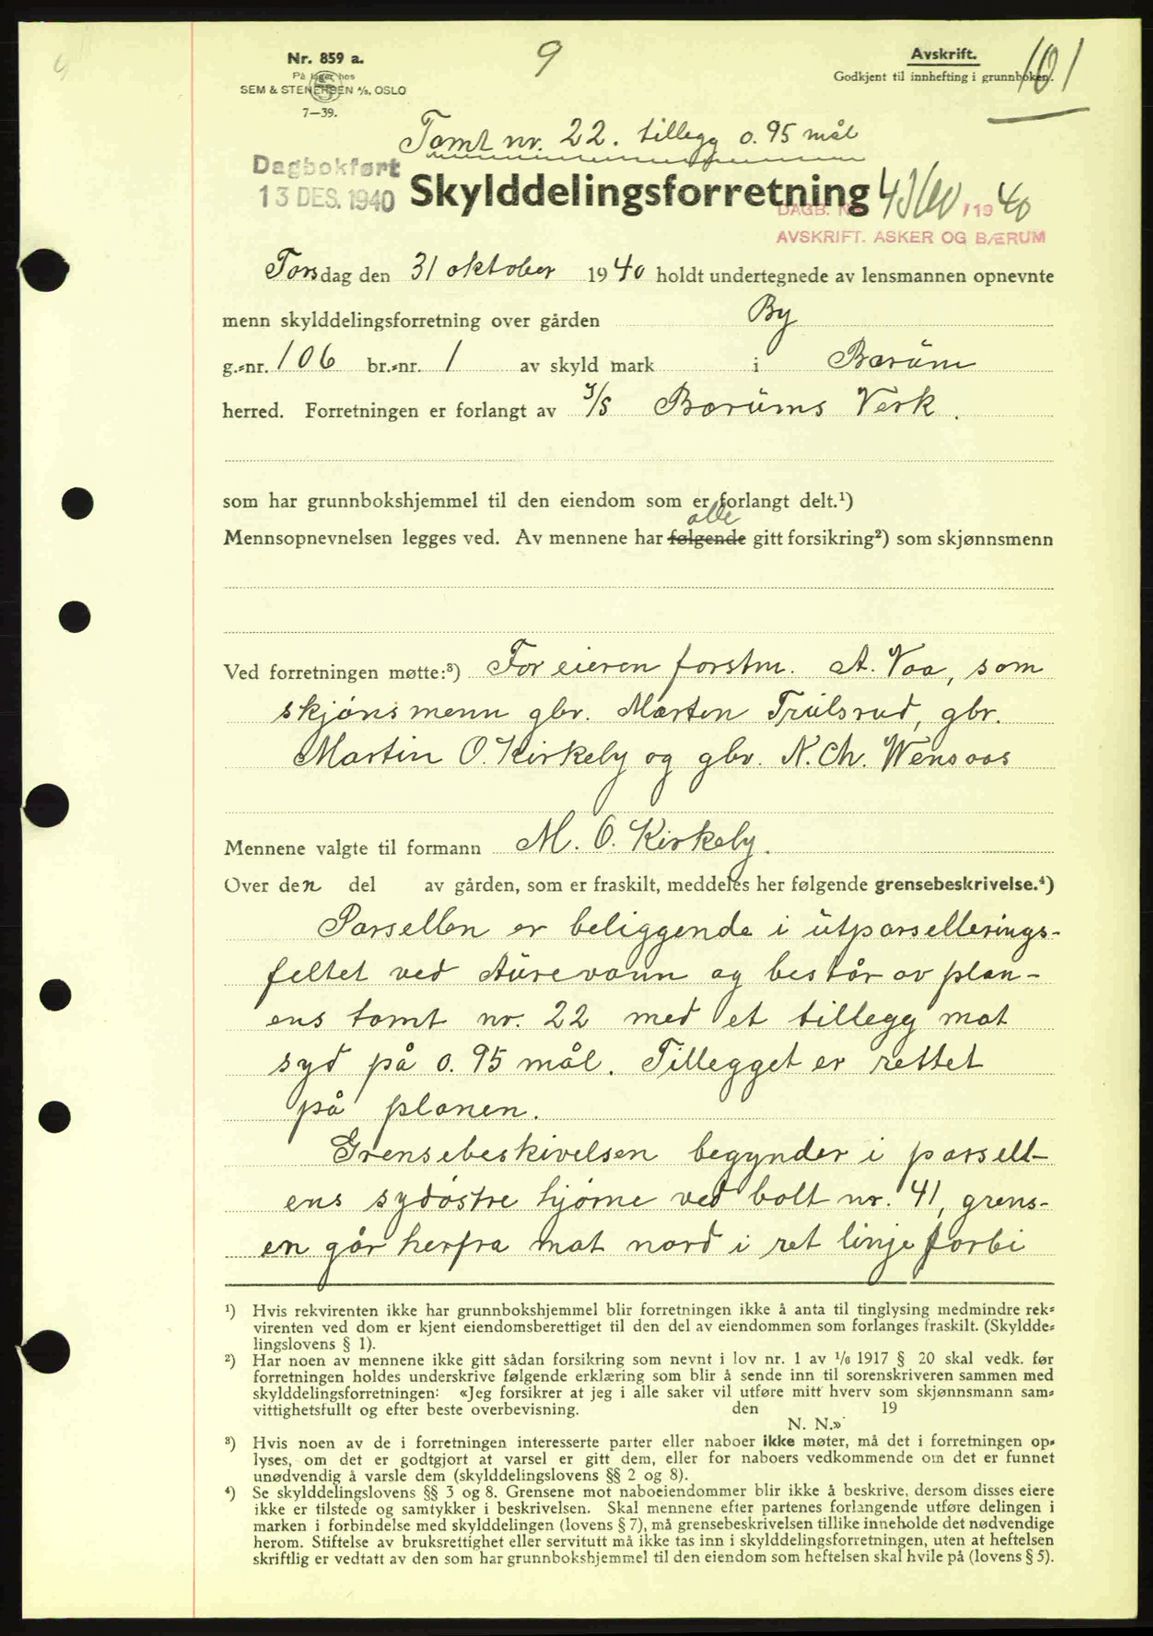 Nr. 859 a.
På lager hos
SEM & STENERSEN A/S, OSLO
7—39.
9
Avskrift.
Godkjent til innhefting i grunnboken.
101
Tomt nr. 22. tillegg 0.95 mål
Dagbokført
13 DES. 1940
Skylddelingsforretning
DAGB. /19 40
AVSKRIFT. ASKER OG BÆRUM
Torsdag den 31 oktober 1940 holdt undertegnede av lensmannen opnevnte
menn skylddelingsforretning over gården By
g.-nr. 106 br.-nr. 1 av skyld mark i Bærum
herred. Forretningen er forlangt av I/S Bærums Verk.
som har grunnbokshjemmel til den eiendom som er forlangt delt.¹)
alle
Mennsopnevnelsen legges ved. Av mennene har følgende gitt forsikring²) som skjønnsmenn
Ved forretningen møtte:³) For eieren forstm. A. Vaa, som
skjønsmenn gbr. Marten Trulsrud, gbr.
Martin O. Kirkeby og gbr. N. Ch. Wensaas
Mennene valgte til formann M. O. Kirkeby.
Over den del av gården, som er fraskilt, meddeles her følgende grensebeskrivelse.⁴)
Parsellen er beliggende i utparsellerings-
feltet ved Aurevann og består av plan-
ens tomt nr. 22 med et tillegg mot
syd på 0.95 mål. Tillegget er rettet
på planen.
Grensebeskivelsen begynder i parsell-
ens sydøstre hjørne ved bolt nr. 41, grens-
en går herfra mot nord i ret linje forbi
¹) Hvis rekvirenten ikke har grunnbokshjemmel blir forretningen ikke å anta til tinglysing medmindre rek-
virenten ved dom er kjent eiendomsberettiget til den del av eiendommen som forlanges fraskilt. (Skyldde-
lingslovens § 1).
²) Har noen av mennene ikke gitt sådan forsikring som nevnt i lov nr. 1 av 1/6 1917 § 20 skal vedk. før
forretningen holdes underskrive følgende erklæring som blir å sende inn til sorenskriveren sammen med
skylddelingsforretningen: «Jeg forsikrer at jeg i alle saker vil utføre mitt hverv som skjønnsmann sam-
vittighetsfullt og efter beste overbevisning. den 19
N. N.»
³) Hvis noen av de i forretningen interesserte parter eller naboer ikke møter, må det i forretningen op-
lyses, om det er godtgjort at varsel er gitt dem, eller for naboers vedkommende om det er funnet
unødvendig å varsle dem (skylddelingslovens §§ 2 og 8).
⁴) Se skylddelingslovens §§ 3 og 8. Grensene mot naboeiendommer blir ikke å beskrive, dersom disses eiere
ikke er tilstede og samtykker i beskrivelsen. Skal mennene efter partenes forlangende utføre delingen i
marken i forbindelse med skylddelingen (lovens § 7), må grensebeskrivelsen tillike inneholde det nødvendige
herom. Stiftelse av bruksrettighet eller servitutt må ikke tas inn i skylddelingsforretningen, uten at heftelsen
skriftlig er vedtatt av den som har grunnbokshjemmel til den eiendom som heftelsen skal hvile på (lovens § 5).